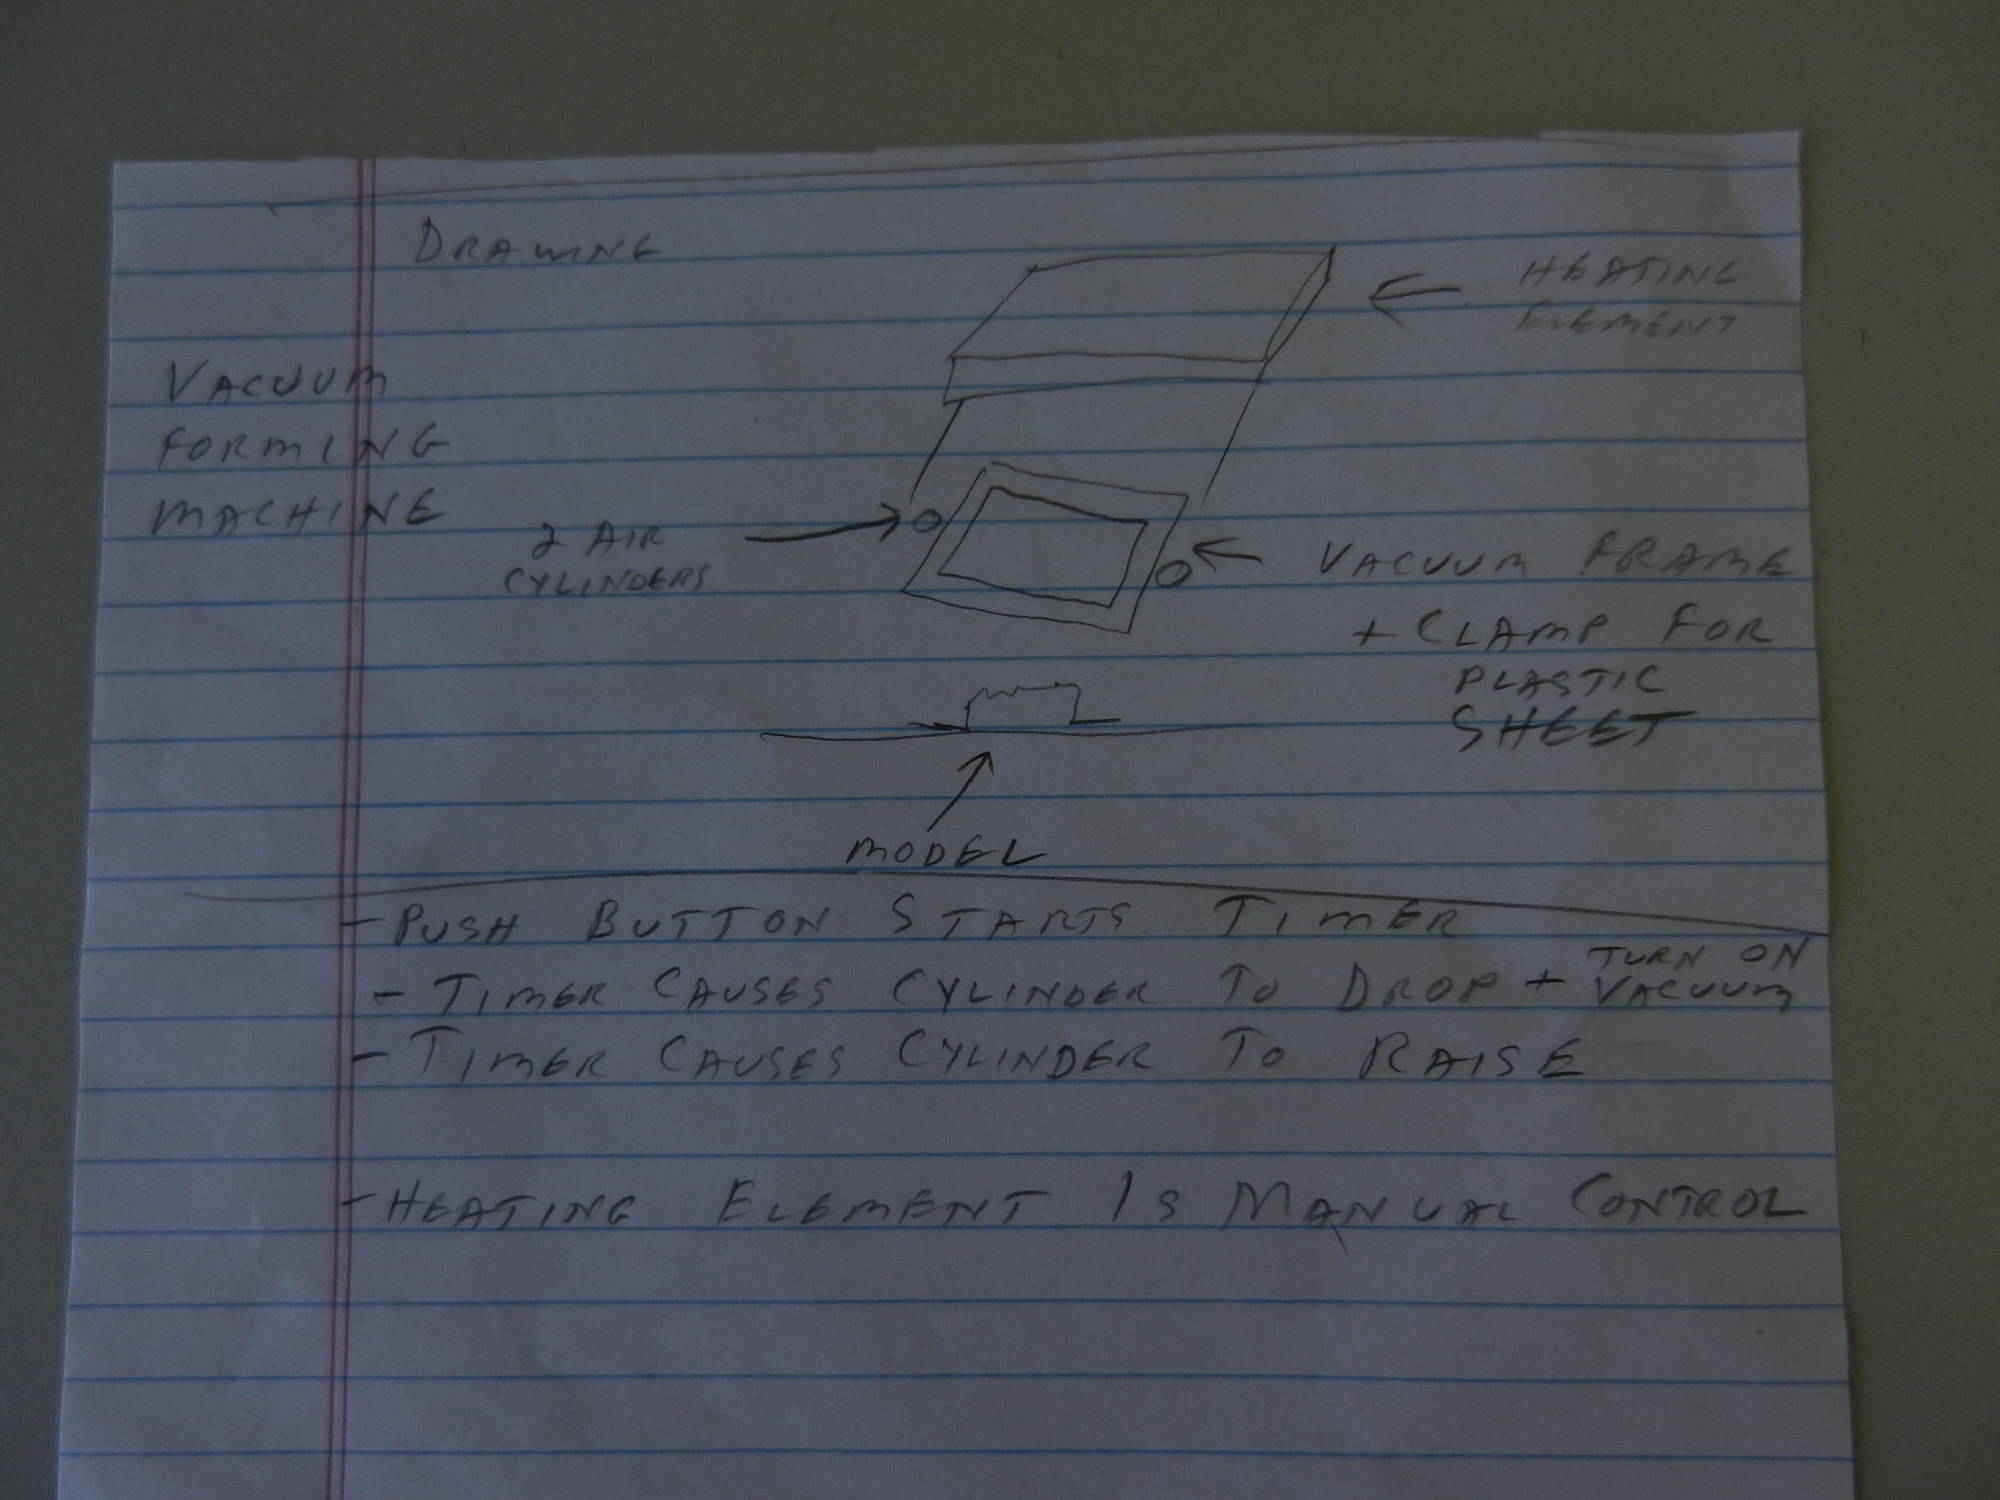 DRAWING
HEATING
ELEMENT
VACUUM
FORMING
MACHINE
2 AIR
CYLINDERS
VACUUM FRAME
+ CLAMP FOR
PLASTIC
SHEET
MODEL
- PUSH BUTTON STARTS TIMER
- TIMER CAUSES CYLINDER TO DROP + TURN ON
VACUUM
- TIMER CAUSES CYLINDER TO RAISE
- HEATING ELEMENT IS MANUAL CONTROL